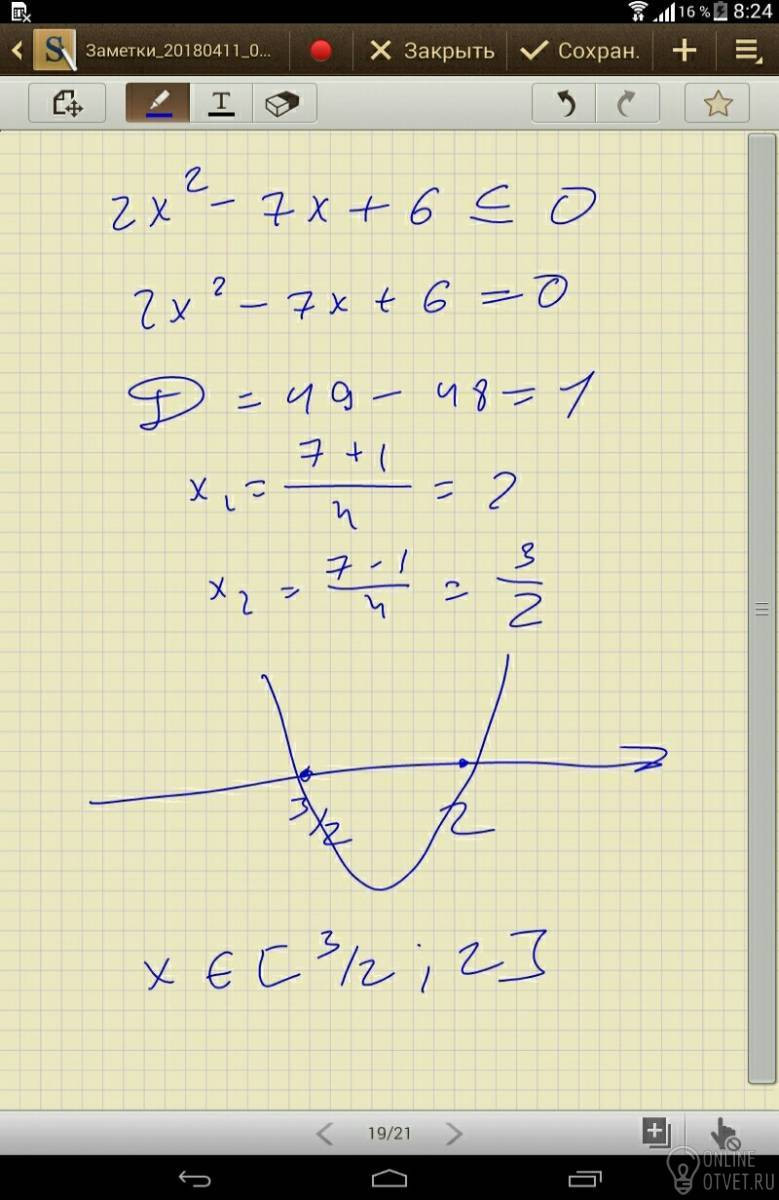 16 % 8:24
Заметки_20180411_0... Закрыть Сохран.
T
2x² - 7x + 6 ≤ 0
2x² - 7x + 6 = 0
D = 49 - 48 = 1
x₁ = (7 + 1)/4 = 2
x₂ = (7 - 1)/4 = 3/2
3/2 2
x ∈ [3/2 ; 2]
19/21
ONLINE
OTVET.RU